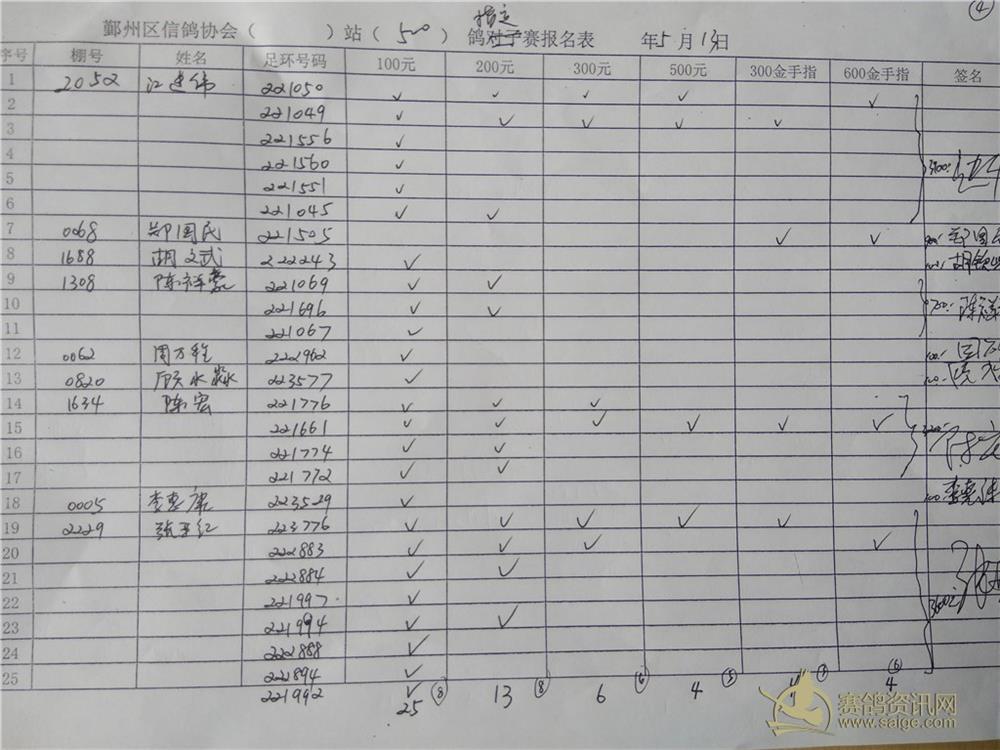 ④
指定
鄞州区信鸽协会（ ）站（ 500 ）鸽对子赛报名表 年5月13日
序号 棚号 姓名 足环号码 100元 200元 300元 500元 300金手指 600金手指 签名
1 2052 江建伟 221050 ✓ ✓ ✓ ✓ ✓
2 221049 ✓ ✓ ✓ ✓ ✓
3 221556 ✓
4 221560 ✓
5 221551 ✓
6 221045 ✓ ✓
7 0068 郑国民 221505 ✓ ✓
8 1688 胡文武 222243 ✓
9 1308 陈祥豪 221069 ✓ ✓
10 221696 ✓ ✓
11 221067 ✓
12 0062 周万程 222962 ✓
13 0820 顾水淼 223577 ✓
14 1634 陈宏 221776 ✓ ✓ ✓
15 221661 ✓ ✓ ✓ ✓ ✓ ✓
16 221774 ✓ ✓
17 221772 ✓ ✓
18 0005 李惠康 223529 ✓
19 2229 张玉红 223776 ✓ ✓ ✓ ✓ ✓
20 222883 ✓ ✓ ✓ ✓
21 222884 ✓ ✓
22 221997 ✓
23 221994 ✓ ✓
24 222888 ✓
25 221894 ✓
221992 ✓
25 ⑧ 13 ⑧ 6 ⑥ 4 ⑤ 4 ⑦ 4 ⑥
赛鸽资讯网
www.saige.com